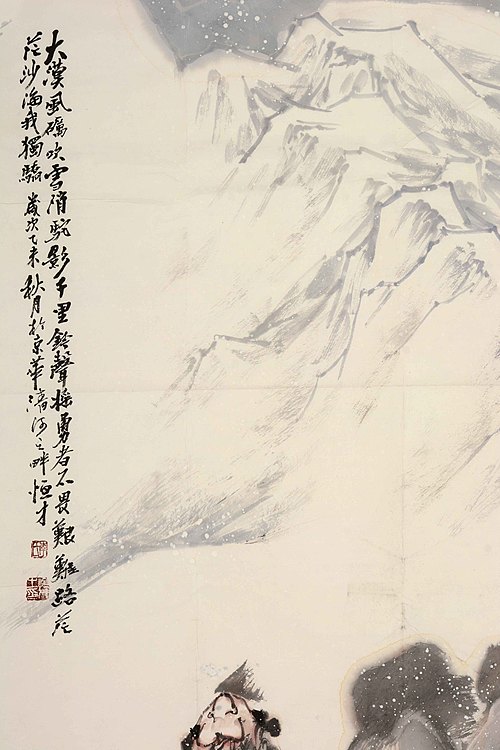 大漠風礪吹雪消駝影千里鈴聲搖勇者不畏艱難路茫
茫沙海我獨驕歲次乙未秋月於京華清河之畔恒才